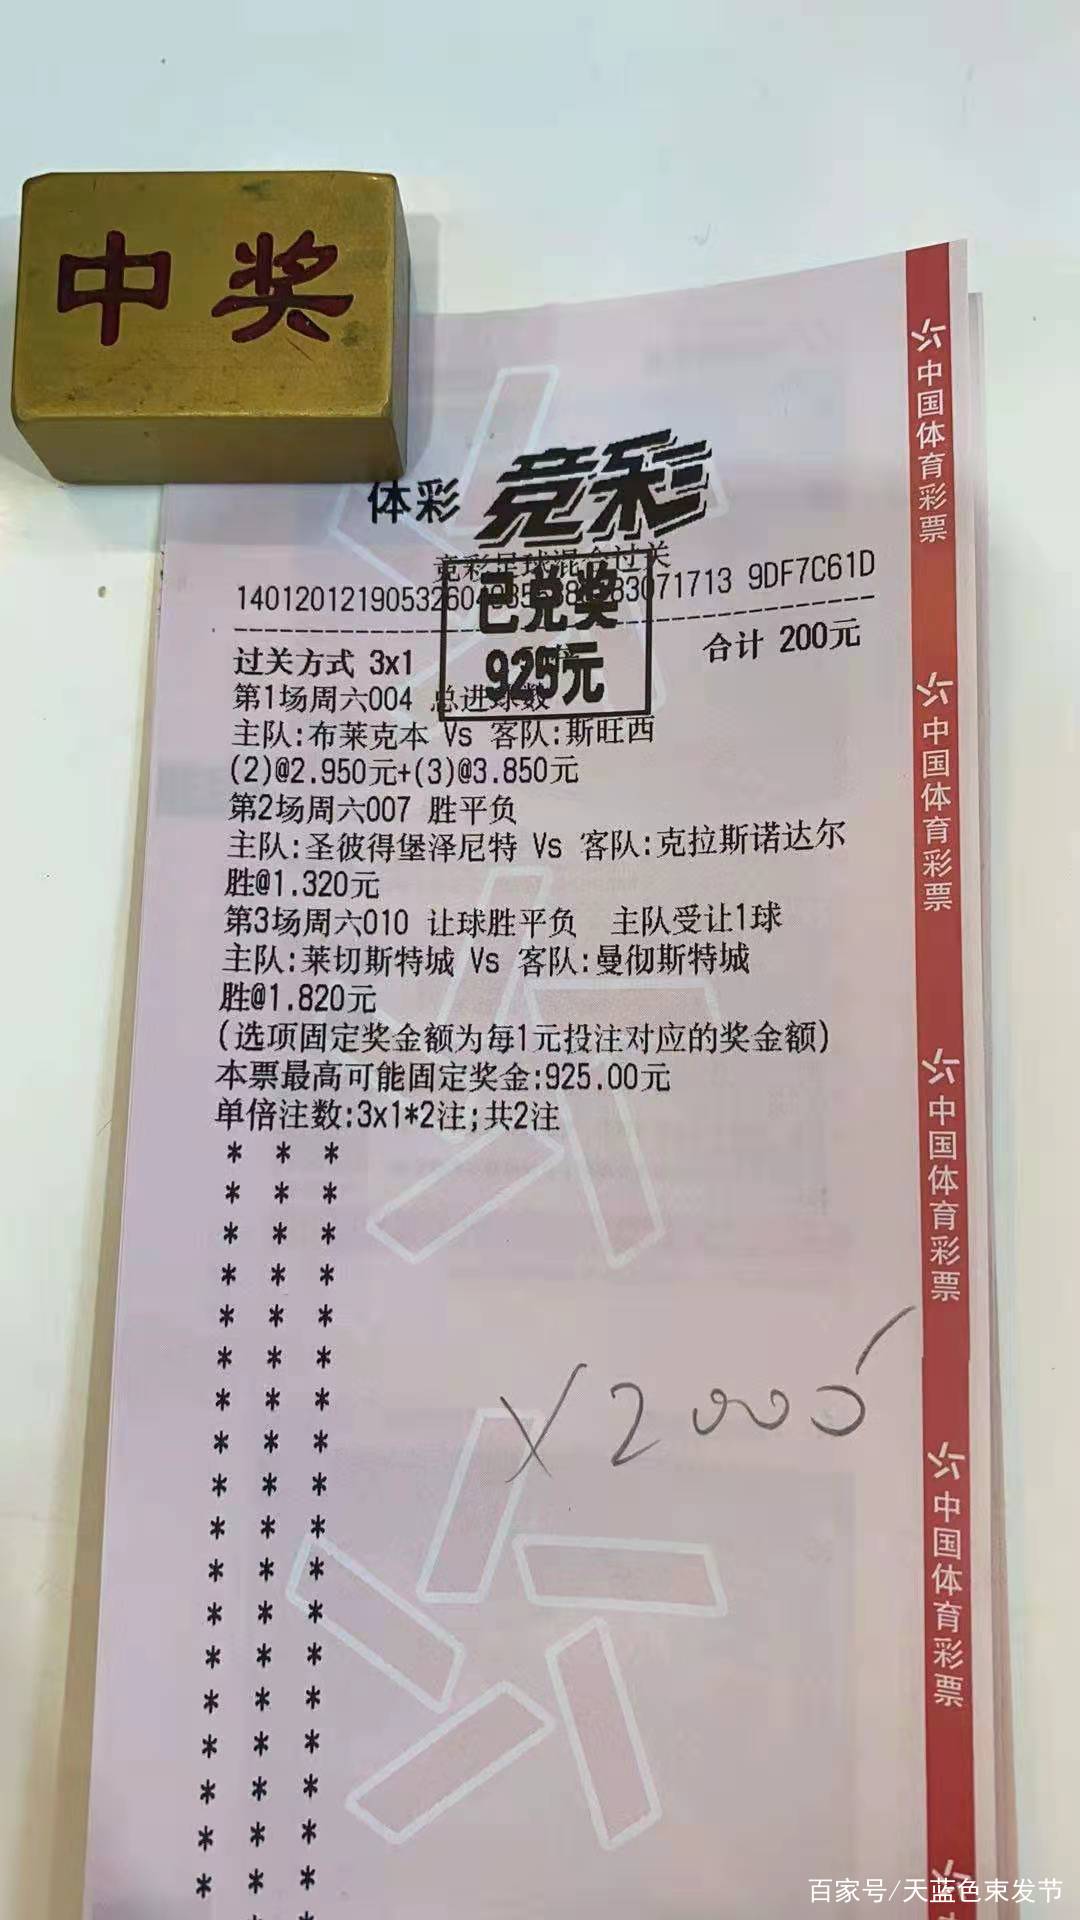 中奖
体彩 竞彩
竞彩足球混合过关
9DF7C61D
已兑奖
925元
过关方式 3x1
合计 200元
第1场周六004 总进球数
主队:布莱克本 Vs 客队:斯旺西
(2)@2.950元+(3)@3.850元
第2场周六007 胜平负
主队:圣彼得堡泽尼特 Vs 客队:克拉斯诺达尔
胜@1.320元
第3场周六010 让球胜平负 主队受让1球
主队:莱切斯特城 Vs 客队:曼彻斯特城
胜@1.820元
(选项固定奖金额为每1元投注对应的奖金额)
本票最高可能固定奖金:925.00元
单倍注数:3x1*2注;共2注
中国体育彩票
中国体育彩票
中国体育彩票
中国体育彩票
百家号/天蓝色束发节